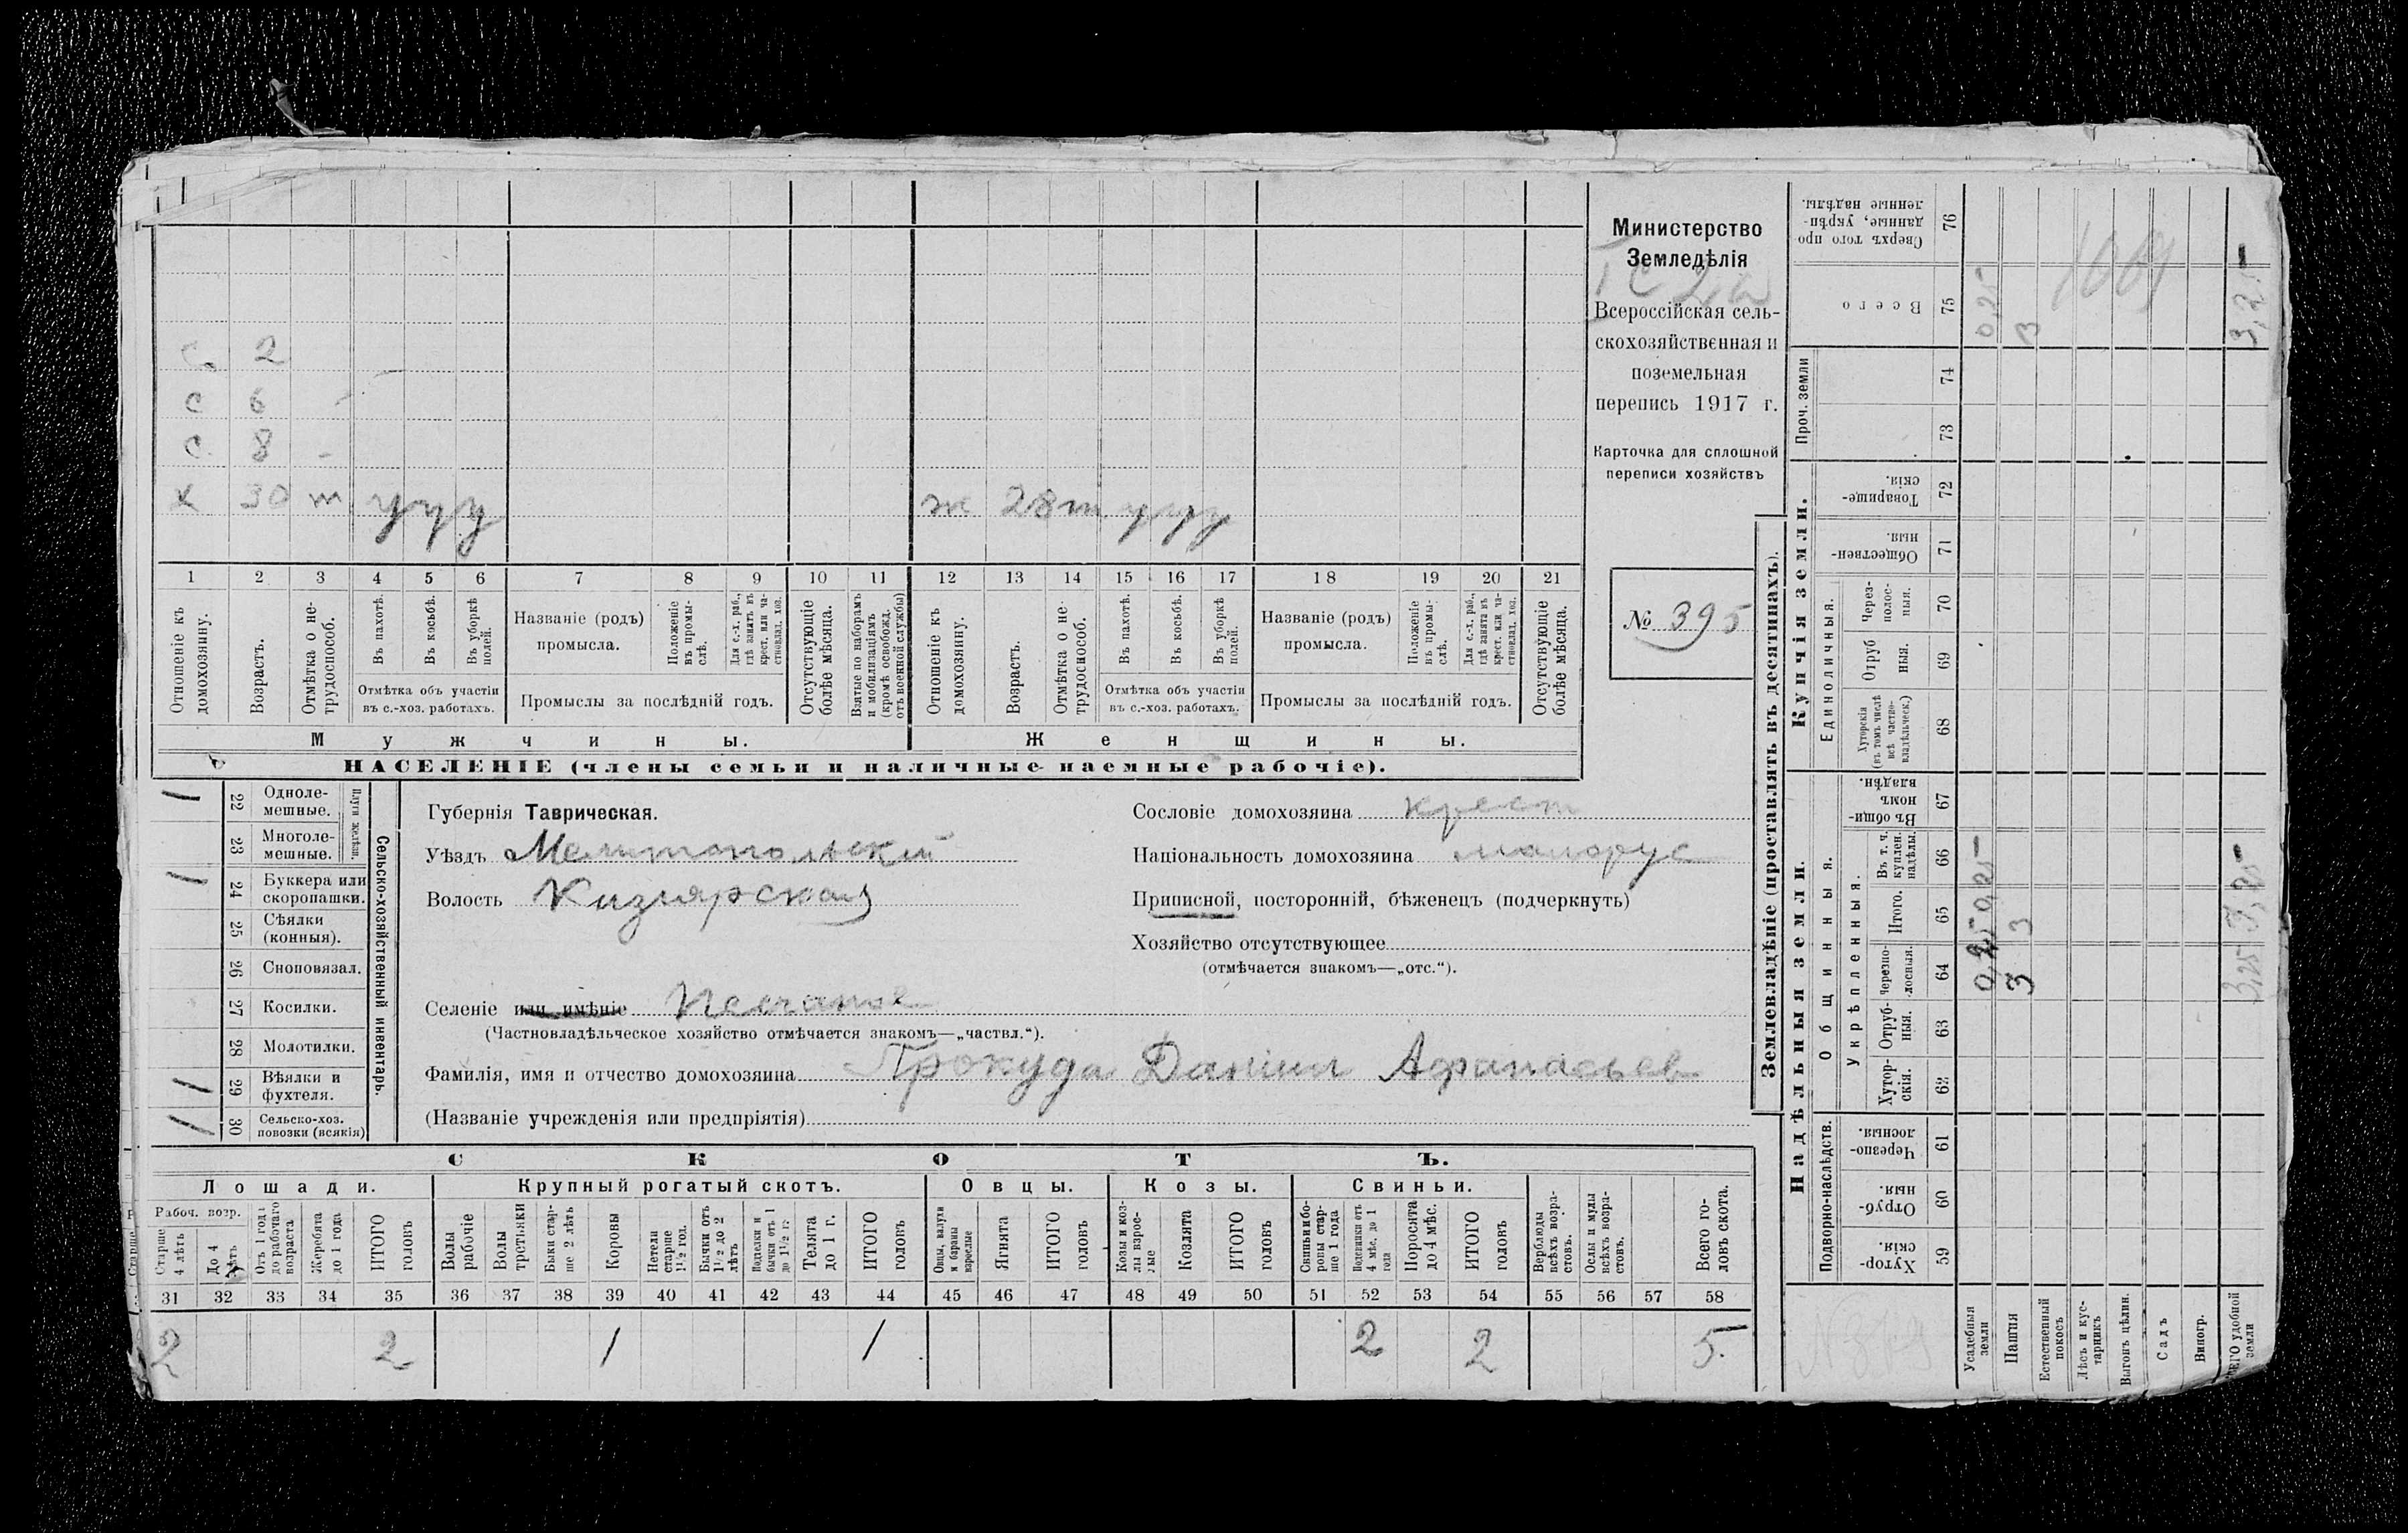 Министерство
Земледѣлія
Всероссійская сель-
скохозяйственная и
поземельная
перепись 1917 г.
Карточка для сплошной
переписи хозяйствъ
№ 395
с 2
с 6
с 8
х 30 т у у у
ж 28 т у у у
1 2 3 4 5 6 7 8 9 10 11 12 13 14 15 16 17 18 19 20 21
Отношеніе къ домохозяину.
Возрастъ.
Отмѣтка о не-трудоспособ.
Въ пахотѣ.
Въ косьбѣ.
Въ уборкѣ полей.
Отмѣтка объ участіи
въ с.-хоз. работахъ.
Названіе (родъ)
промысла.
Положеніе въ промы-слѣ.
Для с.-х. раб., гдѣ занятъ въ крест. или ча-стновлад. хоз.
Промыслы за послѣдній годъ.
Отсутствующіе болѣе мѣсяца.
Взятые по наборамъ и мобилизаціямъ (кромѣ освобожд. отъ военной службы)
Отношеніе къ домохозяину.
Возрастъ.
Отмѣтка о не-трудоспособ.
Въ пахотѣ.
Въ косьбѣ.
Въ уборкѣ полей.
Отмѣтка объ участіи
въ с.-хоз. работахъ.
Названіе (родъ)
промысла.
Положеніе въ промы-слѣ.
Для с.-х. раб., гдѣ занята въ крест. или ча-стновлад. хоз.
Промыслы за послѣдній годъ.
Отсутствующіе болѣе мѣсяца.
Мужчины.
Женщины.
НАСЕЛЕНІЕ (члены семьи и наличные наемные рабочіе).
Сельско-хозяйственный инвентарь.
Плуги желѣзн.
1 22 Однолемешные.
23 Многолемешные.
1 24 Буккера или скоропашки.
25 Сѣялки (конныя).
26 Сноповязал.
27 Косилки.
28 Молотилки.
11 29 Вѣялки и фухтеля.
11 30 Сельско-хоз. повозки (всякія)
Губернія Таврическая.
Уѣздъ Мелитопольскій
Волость Кизіярская
Селеніе или имѣніе Песчаное
(Частновладѣльческое хозяйство отмѣчается знакомъ—„частвл.“).
Сословіе домохозяина крест
Національность домохозяина малорус
Приписной, посторонній, бѣженецъ (подчеркнуть)
Хозяйство отсутствующее
(отмѣчается знакомъ—„отс.“).
Фамилія, имя и отчество домохозяина Прокуда Даніил Афанасьев
(Названіе учрежденія или предпріятія)
СКОТЪ.
Лошади.
Крупный рогатый скотъ.
Овцы.
Козы.
Свиньи.
Рабоч. возр.
Старше 4 лѣтъ
До 4 лѣтъ
Отъ 1 года до рабочаго возраста
Жеребята до 1 года
ИТОГО головъ
Волы рабочіе
Волы третьяки
Быки стар-ше 2 лѣтъ
Коровы
Нетели старше 1½ год.
Бычки отъ 1½ до 2 лѣтъ
Нателки и бычки отъ 1 до 1½ г.
Телята до 1 г.
ИТОГО головъ
Овцы, валухи и бараны взрослые
Ягнята
ИТОГО головъ
Козы и коз-лы взрос-лые
Козлята
ИТОГО головъ
Свиньи и бо-ровы стар-ше 1 года
Подсвинки отъ 4 мѣс. до 1 года
Поросята до 4 мѣс.
ИТОГО головъ
Верблюды всѣхъ возра-стовъ.
Ослы и мулы всѣхъ возра-стовъ.
Всего го-ловъ скота.
31 32 33 34 35 36 37 38 39 40 41 42 43 44 45 46 47 48 49 50 51 52 53 54 55 56 57 58
2 2 1 1 2 2 5
Землевладѣніе (проставлять въ десятинахъ).
Надѣльныя земли.
Купчія земли.
Проч. земли
Подворно-наслѣдств.
Общинныя.
Укрѣпленныя.
Единоличныя.
Сверхъ того про-данные, укрѣп-ленные надѣлы. 76
Всего 75
74
73
Товарище-скія. 72
Обществен-ныя. 71
Через-полос-ныя. 70
Отрубныя. 69
Хуторскія (въ томъ числѣ всѣ частно-владѣльческ.) 68
Въ общинномъ владѣн. 67
Въ т. ч. куплен. надѣлы. 66
Итого. 65
Черезпо-лосныя. 64
Отруб-ныя. 63
Хутор-скія. 62
Черезпо-лосныя. 61
Отруб-ныя. 60
Хутор-скія. 59
Усадебныя земли 0,25 0,25 0,25
Пашня 3 3 3
Естественный покосъ
Лѣсъ и кус-тарникъ
Выгонъ цѣлин.
Садъ
Виногр.
ЕГО удобной земли 3,25 3,25 3,25